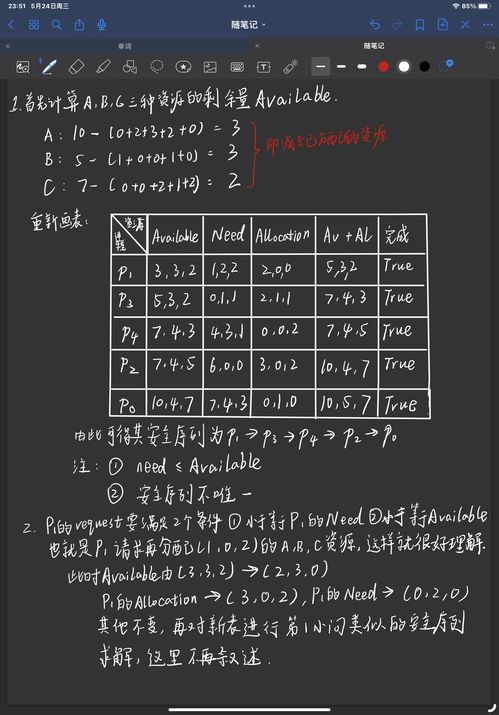 23:51 5月24日周三
85%
随笔记
单词
随笔记
1.首先计算A,B,C三种资源的剩余量Available.
A: 10-(0+2+3+2+0)=3
B: 5-(1+0+0+1+0)=3
C: 7-(0+0+2+1+2)=2
即减去已分配的资源
重新画表:
资源
进程
Available Need Allocation Av+AL 完成
P1 3,3,2 1,2,2 2,0,0 5,3,2 True
P3 5,3,2 0,1,1 2,1,1 7,4,3 True
P4 7,4,3 4,3,1 0,0,2 7,4,5 True
P2 7,4,5 6,0,0 3,0,2 10,4,7 True
P0 10,4,7 7,4,3 0,1,0 10,5,7 True
由此可得其安全序列为P1→P3→P4→P2→P0
注:① need ≤ Available
② 安全序列不唯一
2. P1的request要满足2个条件 ①小于等于P1的Need ②小于等于Available
也就是P1请求再分配(1,0,2)的A,B,C资源,这样就很好理解.
此时Available由(3,3,2)→(2,3,0)
P1的Allocation→(3,0,2), P1的Need→(0,2,0)
其他不变,再对新表进行第1小问类似的安全序列
求解,这里不再叙述.